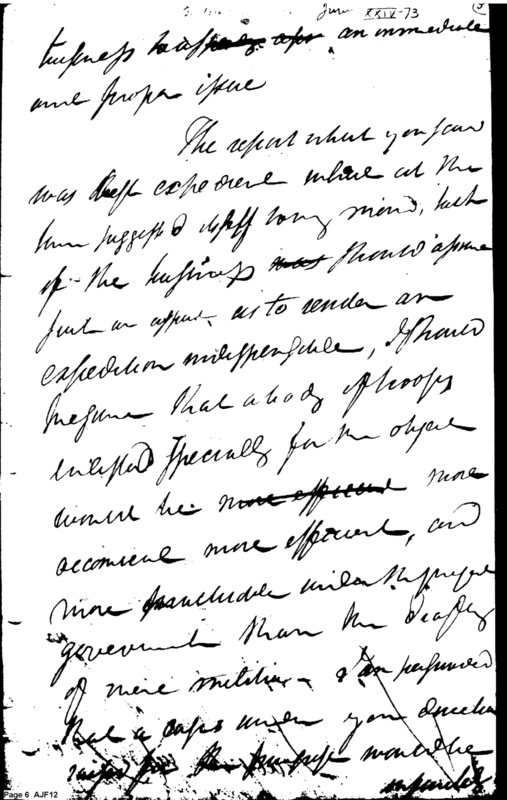 June XXIV-73
business an immediate
and proper issue
The report which you saw
was expedient while at the
time suggested itself to my mind, but
if the business should assume
such an aspect, as to render an
expedition indispensable, I should
presume that a body of troops
enlisted specially for the object
would be more efficient more
oeconomical more efficient, and
more under the present
government than the drafting
of mere militia. I am persuaded
that a corps under your direction
raised for the purpose would be
Page 6 AJF12